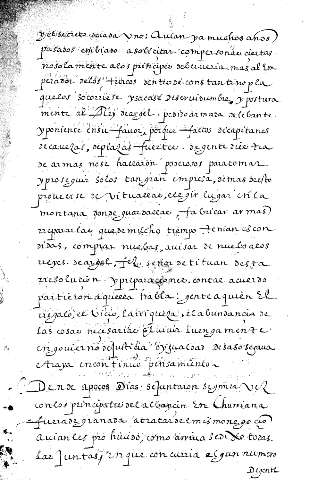 y el secreto de cada uno: Avian ya muchos años
pasados embiado a solicitar con personas ciertas
no solamente a los principes de berueria, mas al em
perador de los turcos dentro de constantinopla
que los socorriese y sacase de servidumbre, y postura
mente al Rei de argel pedido armada de levante
y poniente en su favor, porque faltos de capitanes
de cavezas, de plazas fuertes, de gente diestra
de armas no se hallaron poderosos para tomar
y proseguir solos tan gran empresa, demas desto
proveerse de vituallas, elegir lugar en la
montaña donde guardallas, fabricar armas
reparar las que de mucho tiempo tenian escon
didas, comprar nuebas, avisar de nuebo a los
reyes de argel, fez, señor de tituan desta
resolucion y preparaciones, con tal acuerdo
partieron aquella habla: gente a quien El
regalo, el vicio, la riqueza, el abundancia de
las cosas necesarias, El vivir luengamente
en govierno de justicia e ygualdad desasosegava
e traya en continuo pensamiento.
Dende a pocos Dias se juntaron de otra vez
con los principales del albaycin En churriana
fuera de granada a tratar del mismo negocio
avian les prohivido, como arriva se dixo todas
las juntas, En que concurria algun numero
De gente